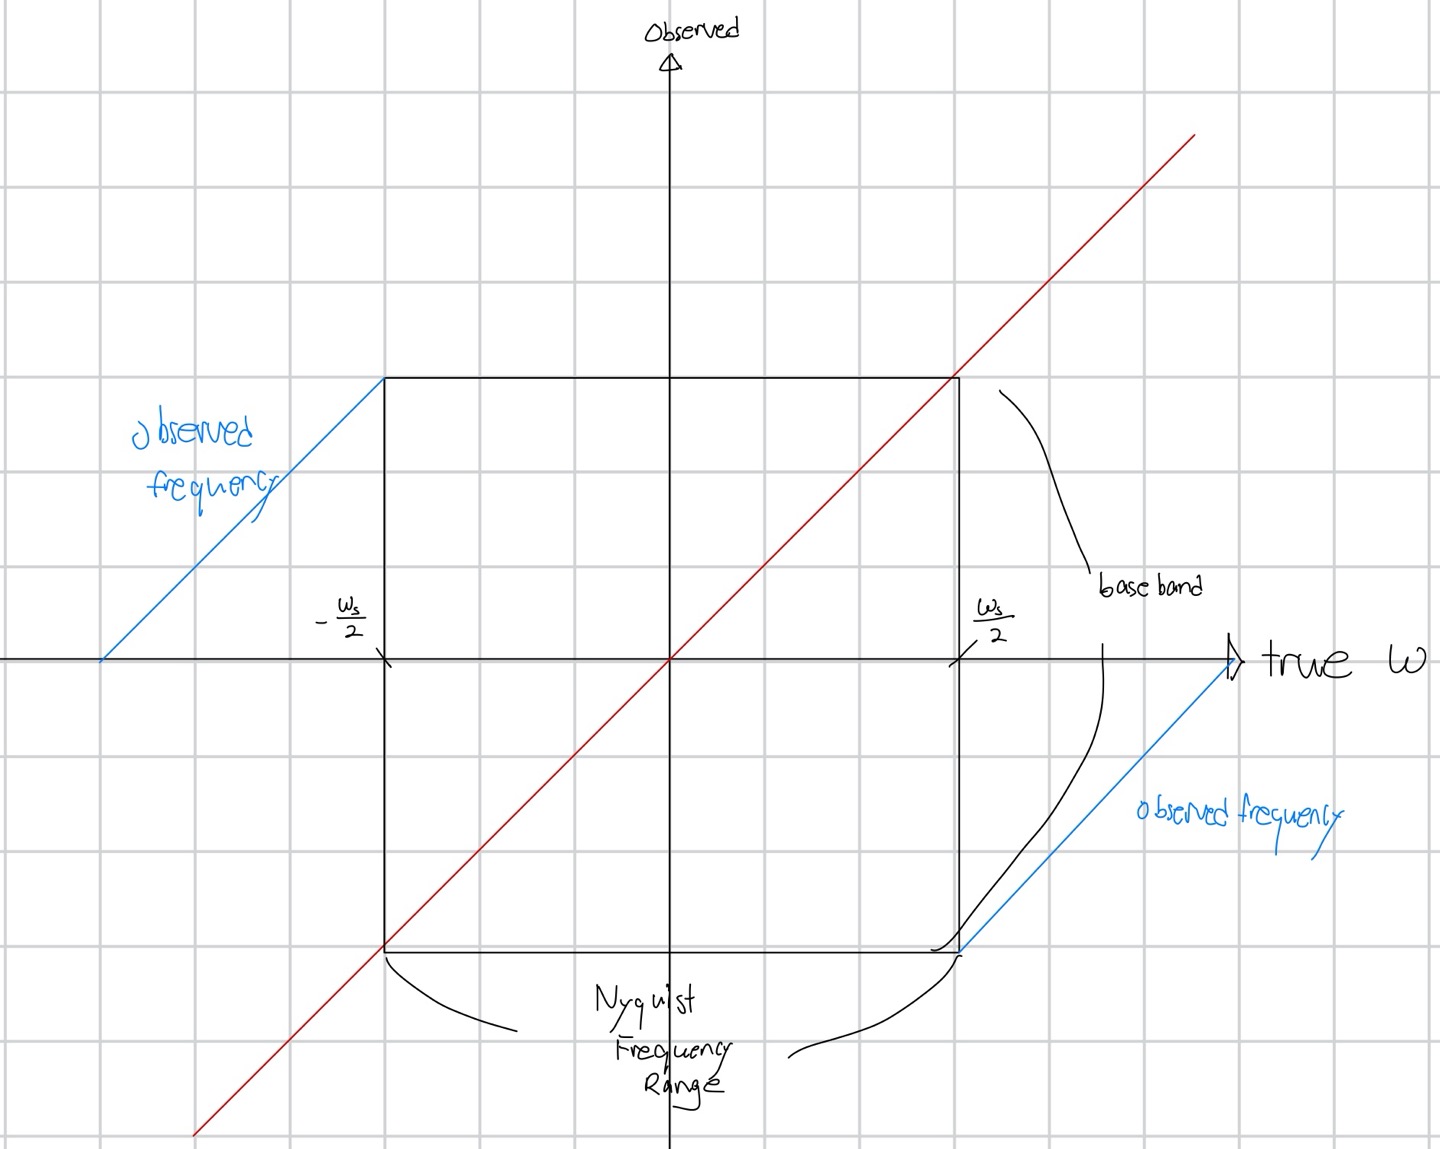 Observed
observed
frequency
base band
- ωs/2
ωs/2
true ω
observed frequency
Nyquist
Frequency
Range